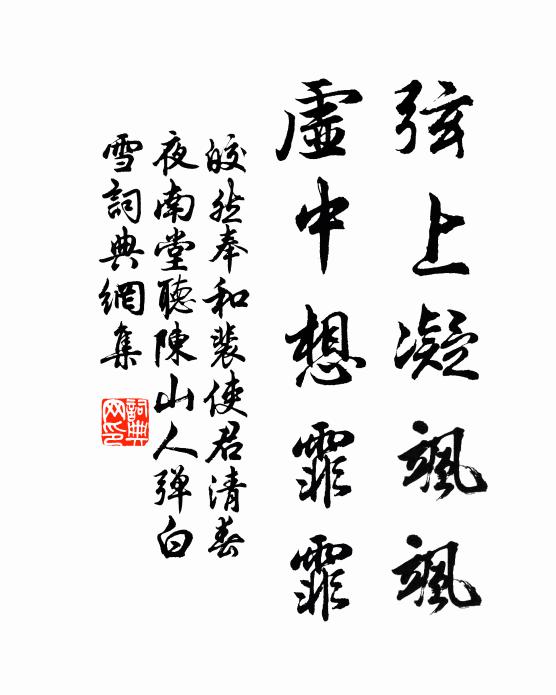 弦上凝颯颯
虛中想霏霏
皎然奉和裴使君清春
夜南堂聽陳山人彈白
雪詞典網集
詞典
网印